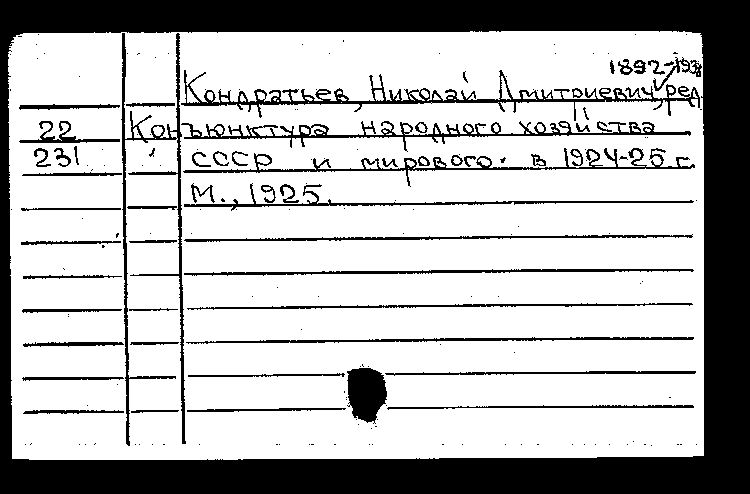 1892-1938
Кондратьев, Николай Дмитриевич, ред.
22 Конъюнктура народного хозяйства
231 СССР и мирового. в 1924-25 г.
М., 1925.